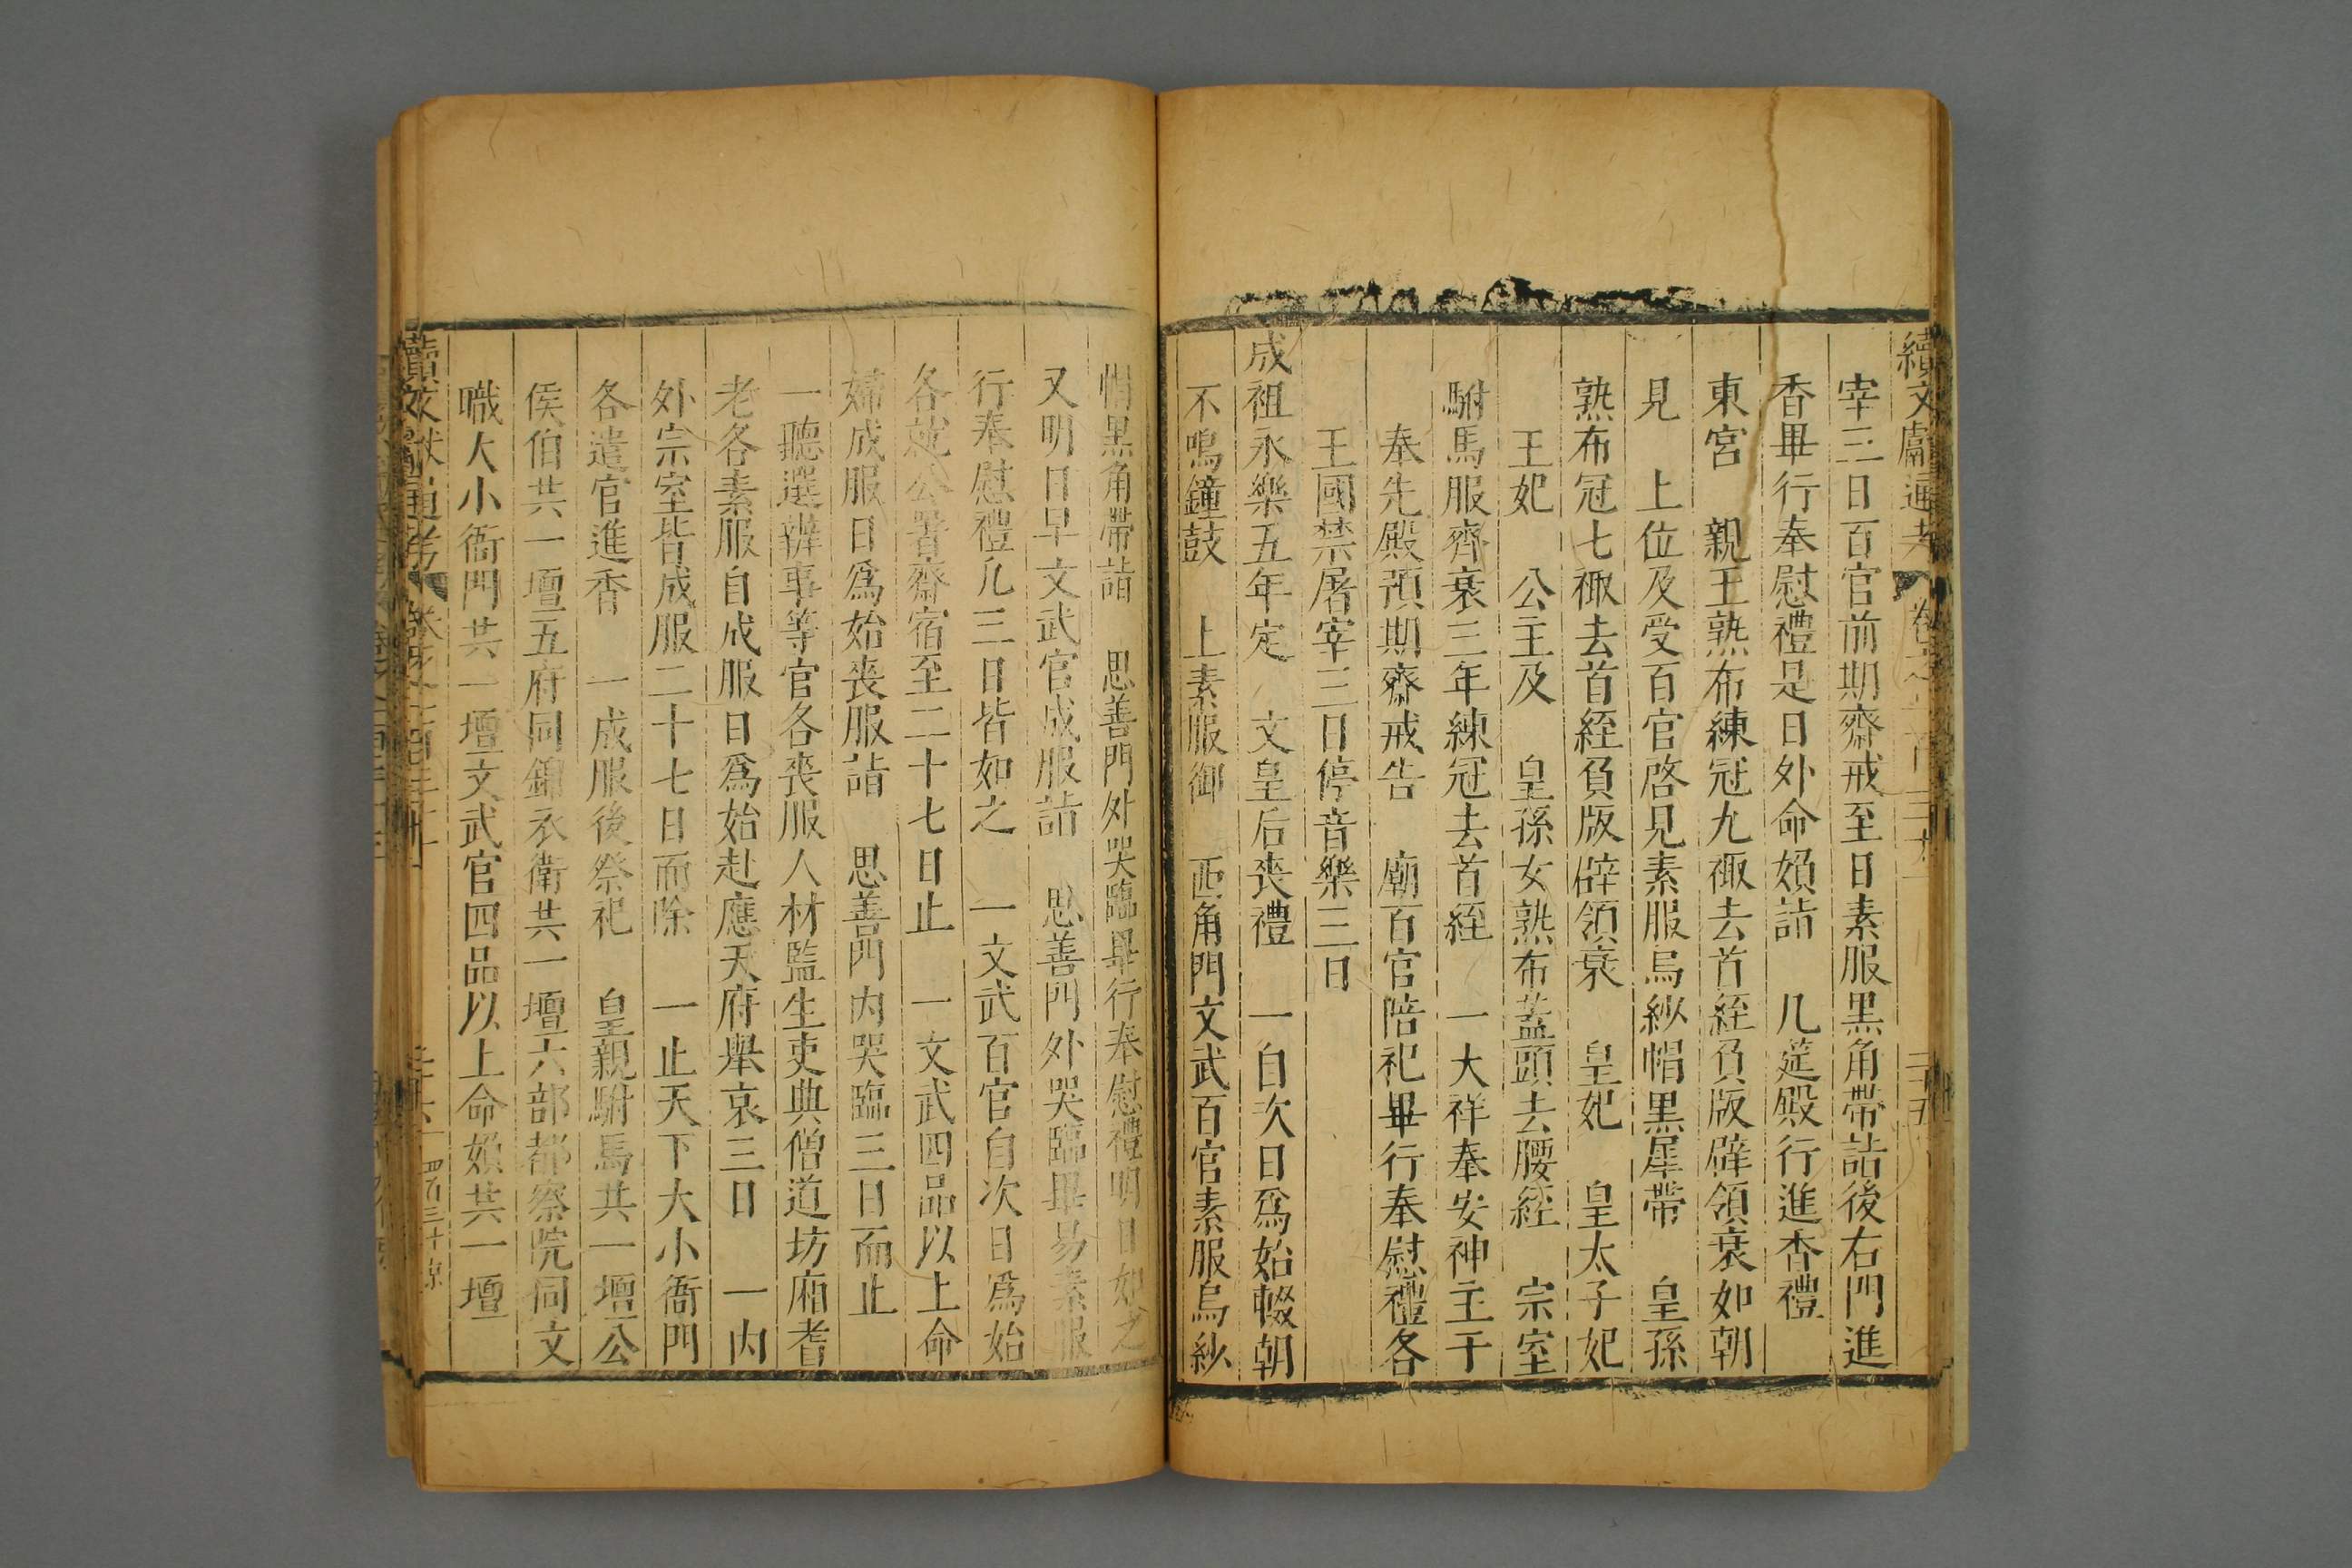 續文獻通考
宰三日百官前期齋戒至日素服黑角帶詣後右門進
香畢行奉慰禮是日外命婦詣 几筵殿行進香禮
東宮 親王熟布練冠九䙝去首絰負版辟領衰如朝
見 上位及受百官啓見素服烏紗帽黑犀帶 皇孫
熟布冠七䙝去首絰負版辟領衰 皇妃 皇太子妃
王妃 公主及 皇孫女熟布蓋頭去腰絰 宗室
駙馬服齊衰三年練冠去首絰 一大祥奉安神主于
奉先殿預期齋戒告 廟百官陪祀畢行奉慰禮各
王國禁屠宰三日停音樂三日
成祖永樂五年定 文皇后喪禮 一自次日爲始輟朝
不鳴鐘鼓 上素服御 西角門文武百官素服烏紗
帽黑角帶詣 思善門外哭臨畢行奉慰禮明日如之
又明日早文武官成服詣 思善門外哭臨畢易素服
行奉慰禮凡三日皆如之 一文武百官自次日爲始
各就公署齋宿至二十七日止 一文武四品以上命
婦成服日爲始喪服詣 思善門内哭臨三日而止
一聽選辦事等官各喪服人材監生吏典僧道坊廂耆
老各素服自成服日爲始赴應天府舉哀三日 一内
外宗室皆成服二十七日而除 一止天下大小衙門
各遣官進香 一成服後祭祀 皇親駙馬共一壇公
侯伯共一壇五府同錦衣衛共一壇六部都察院同文
職大小衙門共一壇文武官四品以上命婦共一壇
續文獻通考